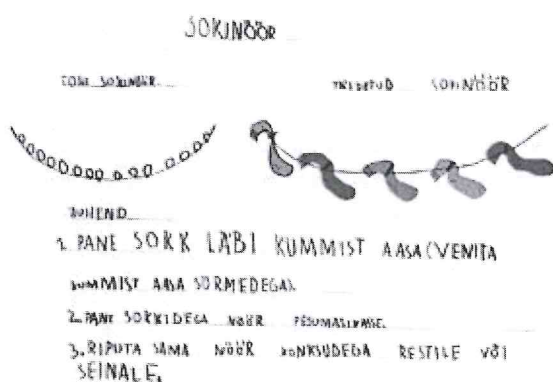 SOKINÖÖR
SOKINÖÖR
TÄIDETUD SOKINÖÖR
JUHEND
1. PANE SOKK LÄBI KUMMIST AASA (VENITA
KUMMIST AASA SÕRMEDEGA).
2. PANE SOKKIDEGA NÖÖR PESUMASINASSE.
3. RIPUTA SAMA NÖÖR KONKSUDEGA RESTILE VÕI
SEINALE.